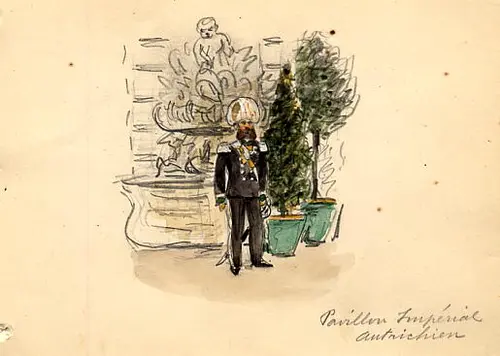 Pavillon Impérial
Autrichien